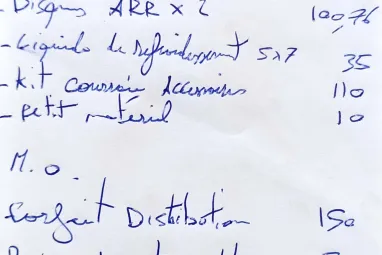 - Disques ARR x 2 100,76
- Liquide de refroidissement 5x7 35
- Kit courroie Accessoires 110
- Petit matériel 10
M.O.
Forfait Distribution 150